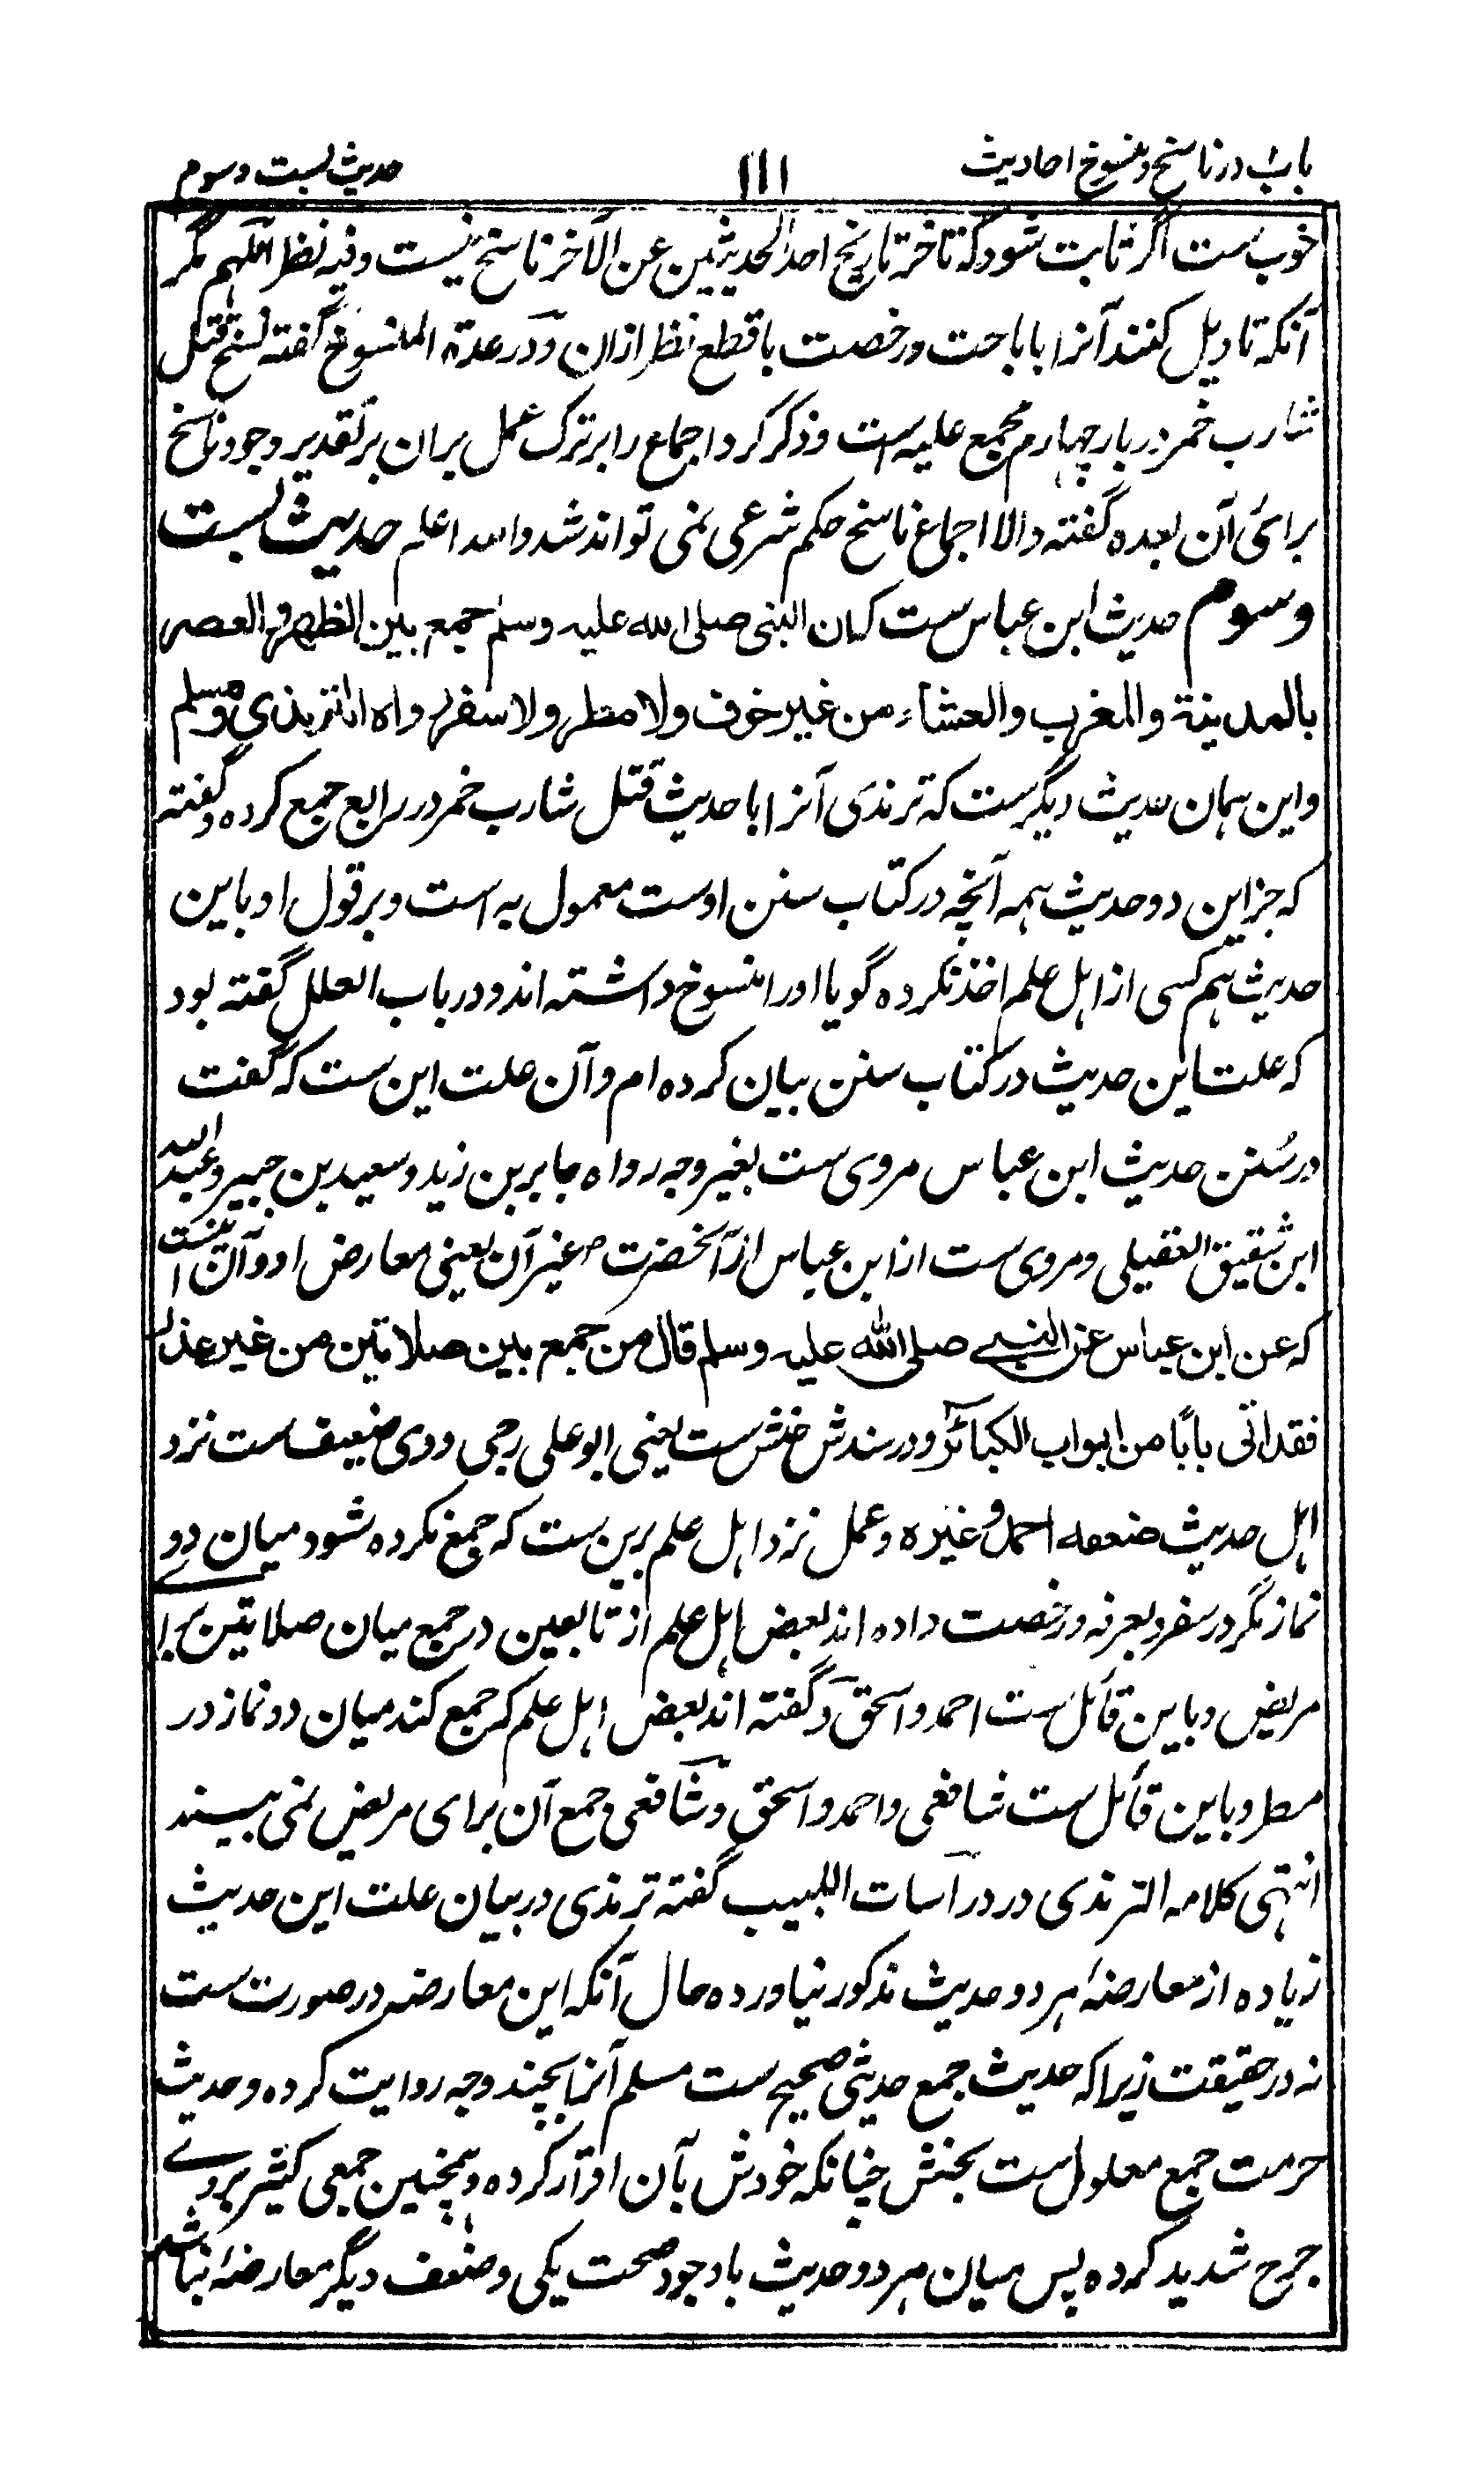 باب در ناسخ و منسوخ احادیث
۱۱۱
حدیث بست و سوم
خوب ست اگر ثابت شود که تاخر تاریخ احد الحدیثین عن الآخر ناسخ نیست و فیه نظر اللهم مگر
آنکه تاویل کنند آنرا باباحت و رخصت با قطع نظر ازان و در عدة المنسوخ گفته نسخ قتل
شارب خمر در بار چهارم مجمع علیه است و ذکر کرد اجماع را بر ترک عمل بران بر تقدیر وجود ناسخ
برائ آن بعده گفته والا اجماع ناسخ حکم شرعی نمی تواند شد والله اعلم حدیث بست
و سوم حدیث ابن عباس ست کان النبی صلی الله علیه وسلم جمع بین الظهر والعصر
بالمدینة والمغرب والعشاء من غیر خوف ولا مطر ولا سفر رواه الترمذی و مسلم
و این همان حدیث دیگرست که ترمذی آنرا با حدیث قتل شارب خمر در رابع جمع کرده و گفته
که جز این دو حدیث همه آنچه در کتاب سنن اوست معمول به است و بر قول او باین
حدیث هم کسی از اهل علم اخذ نکرده گویا او را منسوخ داشته اند و در باب العلل گفته بود
که علت این حدیث در کتاب سنن بیان کرده ام و آن علت این ست که گفت
در سُنن حدیث ابن عباس مروی ست بغیر وجه رواه جابر بن زید و سعید بن جبیر و عبد الله
ابن شقیق العقیلی و مروی ست از ابن عباس از آنحضرت صلم غیر آن یعنی معارض او و آن اینست
که عن ابن عباس عن النبی صلی الله علیه وسلم قال من جمع بین صلاتین من غیر عذر
فقد اتی بابًا من ابواب الکبائر و در سندش حنش ست یعنی ابو علی رحبی و وی ضعیف ست نزد
اهل حدیث ضعفه احمد وغیره و عمل نزد اهل علم برین ست که جمع نکرده شود میان دو
نماز مگر در سفر و بعرفه و رخصت داده اند بعض اهل علم از تابعین در جمع میان صلاتین برای
مریض و باین قائل ست احمد و اسحق و گفته اند بعض اهل علم که جمع کند میان دو نماز در
مطر و باین قائل ست شافعی و احمد و اسحق و شافعی و جمع آن برای مریض نمی بیند
انتهی کلامه الترمذی در دراسات اللبیب گفته ترمذی در بیان علت این حدیث
زیاده از معارضۀ هر دو حدیث مذکور نیاورده حال آنکه این معارضه در صورت ست
نه در حقیقت زیرا که حدیث جمع حدیثی صحیح ست مسلم آنرا بچند وجه روایت کرده و حدیث
حرمت جمع معلول ست بحنش چنانکه خودش بآن اقرار کرده و همچنین جمعی کثیر بروے
جرح شدید کرده پس میان هر دو حدیث با وجود صحت یکی و ضعف دیگر معارضۀ نباشد